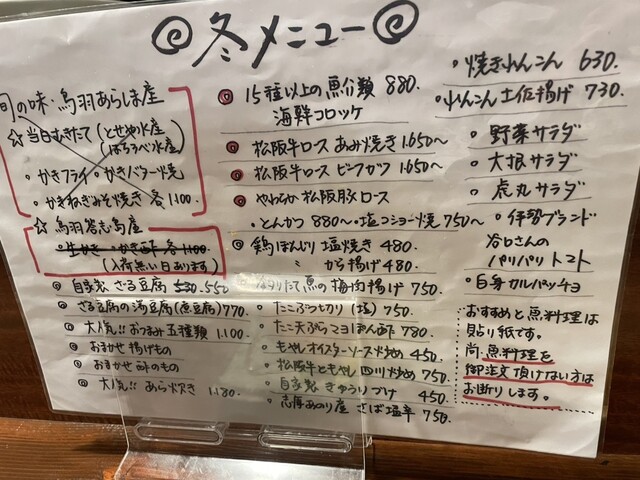 冬メニュー
旬の味・鳥羽あらしま産
☆当日むきたて(とせや水産)
(はちろうべい水産)
・かきフライ・かきバター焼
・かきねぎみそ焼き 各1.100.
☆鳥羽答志島産
・生かき・かき酢 各1.100
(入荷無い日あります)
・自家製 ざる豆腐 530. 550
・ざる豆腐の湯豆腐(煮豆腐)770
・大人気!!おつまみ五種類 1.100.
・おまかせ 揚げもの
・おまかせ 酢のもの
・大人気!! あら炊き 1.180.
◎15種以上の魚介類 880.
海鮮コロッケ
◎松阪牛ロース あみ焼き 1.650〜
◎松阪牛ロース ビーフカツ 1.650〜
◎やわらか 松阪豚ロース
・とんかつ 880〜・塩コショー焼 750〜
◎鶏ぼんじり 塩焼き 480.
〃 から揚げ 480.
たて魚の梅肉揚げ 750.
・たこぶつ切り(塩) 750.
・たこ天ぷらマヨぽん酢 780.
・もやしオイスターソース炒め 450.
・松阪牛ともやし四川炒め 750.
・自家製 きゅうりづけ 450
・志摩あのり産 さば塩辛 750.
・焼きれんこん 630.
・れんこん土佐揚げ 730.
・野菜サラダ
・大根サラダ
・虎丸サラダ
・伊勢ブランド
谷口さんの
パリパリトマト
・白身カルパッチョ
おすすめと魚料理は
貼り紙です。
尚.魚料理を
御注文頂けない方は
お断りします。